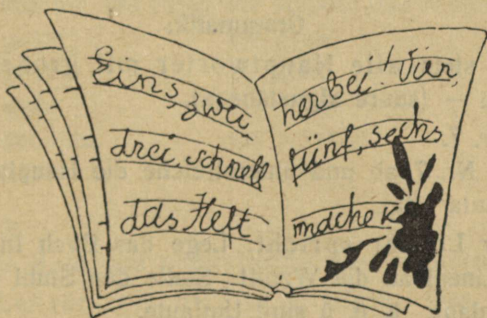 Eins, zwei
drei, schnell
das Heft
herbei! Vier,
fünf, sechs
mache k